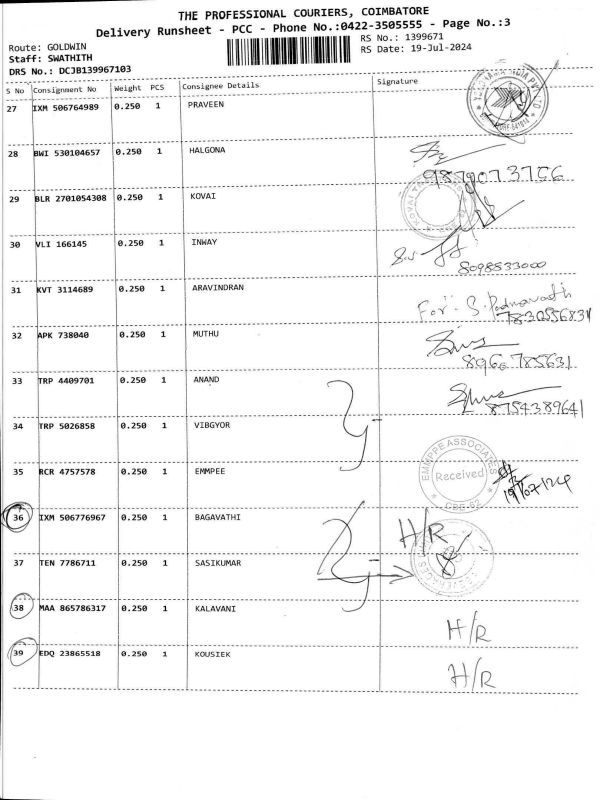 THE PROFESSIONAL COURIERS, COIMBATORE
Delivery Runsheet - PCC - Phone No.:0422-3505555 - Page No.:3
Route: GOLDWIN
RS No.: 1399671
Staff: SWATHITH
RS Date: 19-Jul-2024
DRS No.: DCJB139967103
S No Consignment No Weight PCS Consignee Details Signature
27 IXM 506764989 0.250 1 PRAVEEN
28 BWI 530104657 0.250 1 HALGONA
29 BLR 2701054308 0.250 1 KOVAI
30 VLI 166145 0.250 1 INWAY
8098533000
31 KVT 3114689 0.250 1 ARAVINDRAN
For:- S. Padmavathi
32 APK 738040 0.250 1 MUTHU
33 TRP 4409701 0.250 1 ANAND
8754389641
34 TRP 5026858 0.250 1 VIBGYOR
35 RCR 4757578 0.250 1 EMMPEE
EMMPPE ASSOCIATES
Received
CBE-62
19/07/24
36 IXM 506776967 0.250 1 BAGAVATHI H/R
37 TEN 7786711 0.250 1 SASIKUMAR
38 MAA 865786317 0.250 1 KALAVANI H/R
39 EDQ 23865518 0.250 1 KOUSIEK H/R